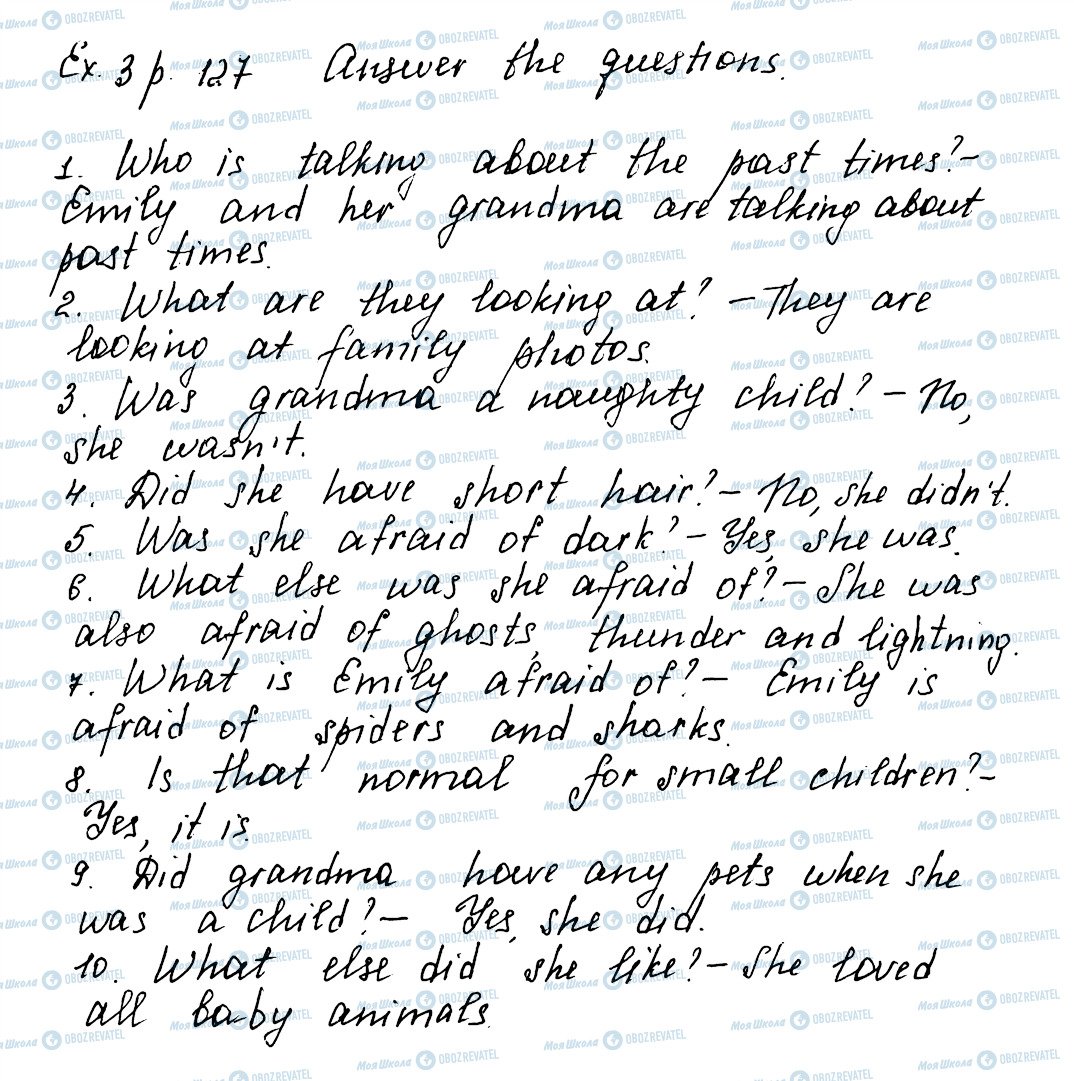 Ex. 3 p. 127 Answer the questions.
1. Who is talking about the past times?-
Emily and her grandma are talking about
past times.
2. What are they looking at? - They are
looking at family photos.
3. Was grandma a naughty child? - No,
she wasn't.
4. Did she have short hair? - No, she didn't.
5. Was she afraid of dark? - Yes, she was.
6. What else was she afraid of? - She was
also afraid of ghosts, thunder and lightning.
7. What is Emily afraid of? - Emily is
afraid of spiders and sharks.
8. Is that normal for small children? -
Yes, it is.
9. Did grandma have any pets when she
was a child? - Yes, she did.
10. What else did she like? - She loved
all baby animals.
Моя Школа OBOZREVATEL